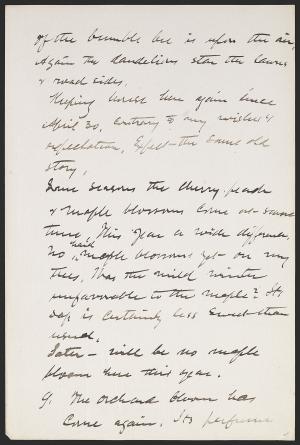 of the bumble bee is upon the air,
Again the dandelions star the lawns
& road sides.
Keeping house here again since
April 30, contrary to my wishes &
expectation, Expect the same old
story,
Some seasons the cherry, peach
& maple blossoms come at same
time, This year a wide difference,
No hard maple blossoms yet on my
trees, Was the mild winter
unfavorable to the maple? Its
sap is certainly less sweet than
usual.
Later – will be no maple
bloom here this year.
9. The orchard bloom has
come again. Its perfume